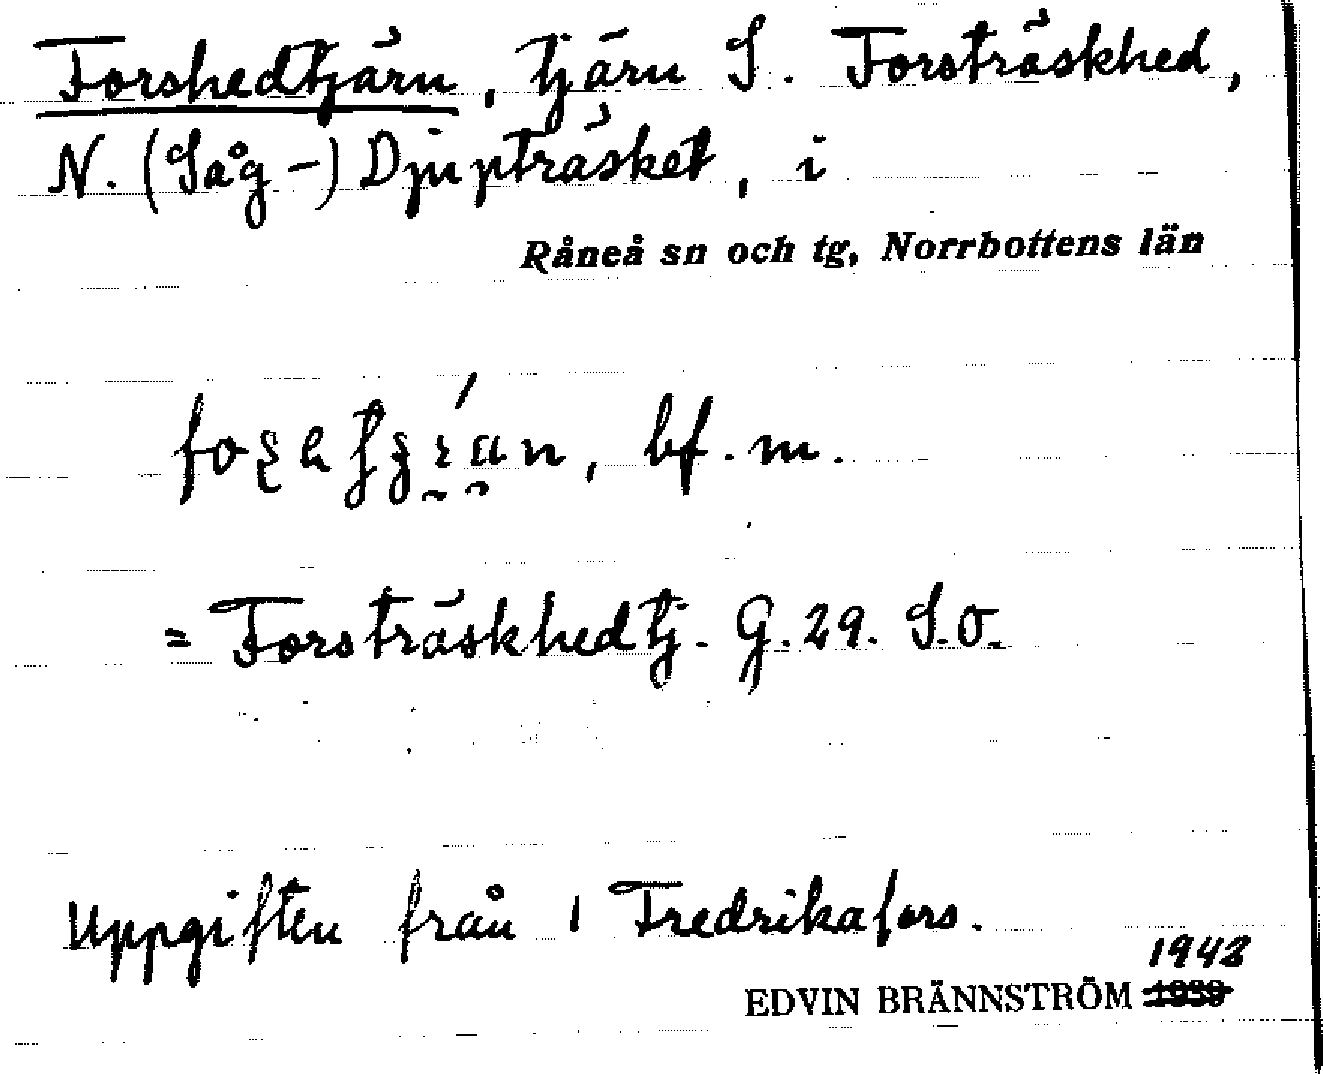 Forshedtjärn, tjärn S. Forsträskhed,
N. (Såg-) Djupträsket, i
Råneå sn och tg, Norrbottens län
bf. m.
= Forsträskhedtj. G. 29. S.O.
Uppgiften från 1 Fredrikafors.
1943
EDVIN BRÄNNSTRÖM 1939